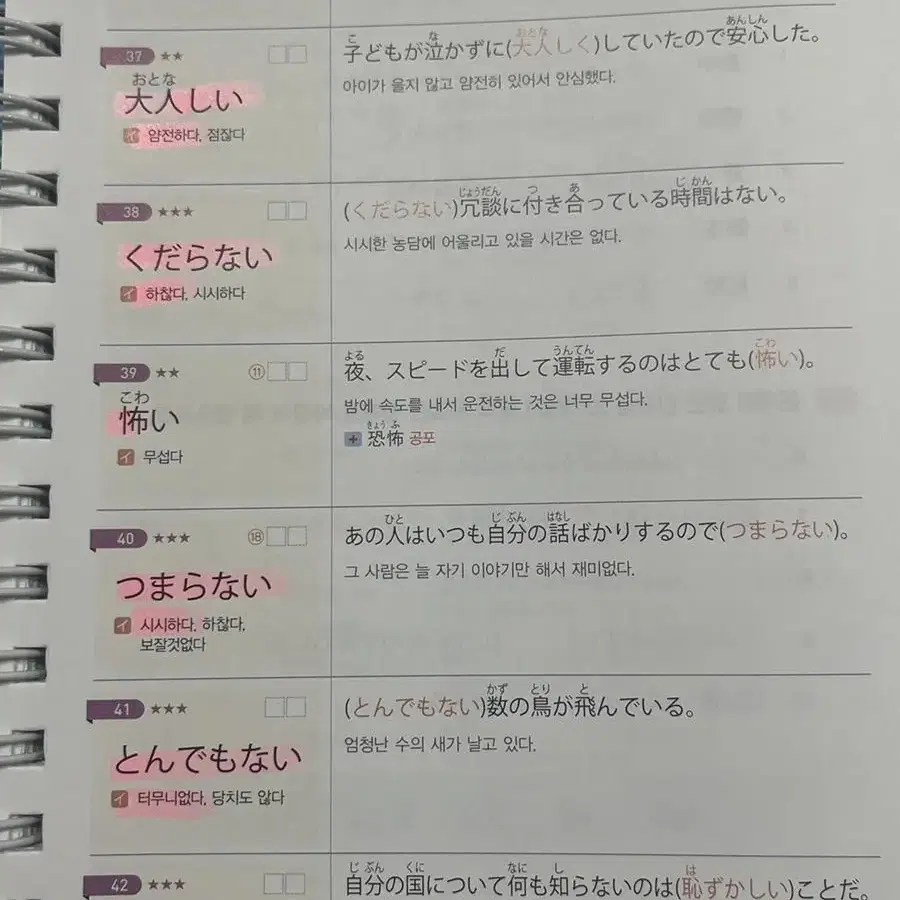 37 ★★
おとな
大人しい
イ 얌전하다, 점잖다
こ な おとな あんしん
子どもが泣かずに(大人しく)していたので安心した。
아이가 울지 않고 얌전히 있어서 안심했다.
38 ★★★
くだらない
イ 하찮다, 시시하다
じょうだん つ あ じかん
(くだらない)冗談に付き合っている時間はない。
시시한 농담에 어울리고 있을 시간은 없다.
39 ★★ ⑪
こわ
怖い
イ 무섭다
よる だ うんてん こわ
夜、スピードを出して運転するのはとても(怖い)。
밤에 속도를 내서 운전하는 것은 너무 무섭다.
きょう ふ
+ 恐怖 공포
40 ★★★ ⑱
つまらない
イ 시시하다, 하찮다,
보잘것없다
ひと じ ぶん はなし
あの人はいつも自分の話ばかりするので(つまらない)。
그 사람은 늘 자기 이야기만 해서 재미없다.
41 ★★★
とんでもない
イ 터무니없다, 당치도 않다
かず とり と
(とんでもない)数の鳥が飛んでいる。
엄청난 수의 새가 날고 있다.
42 ★★★
じ ぶん くに なに し は
自分の国について何も知らないのは(恥ずかしい)ことだ。